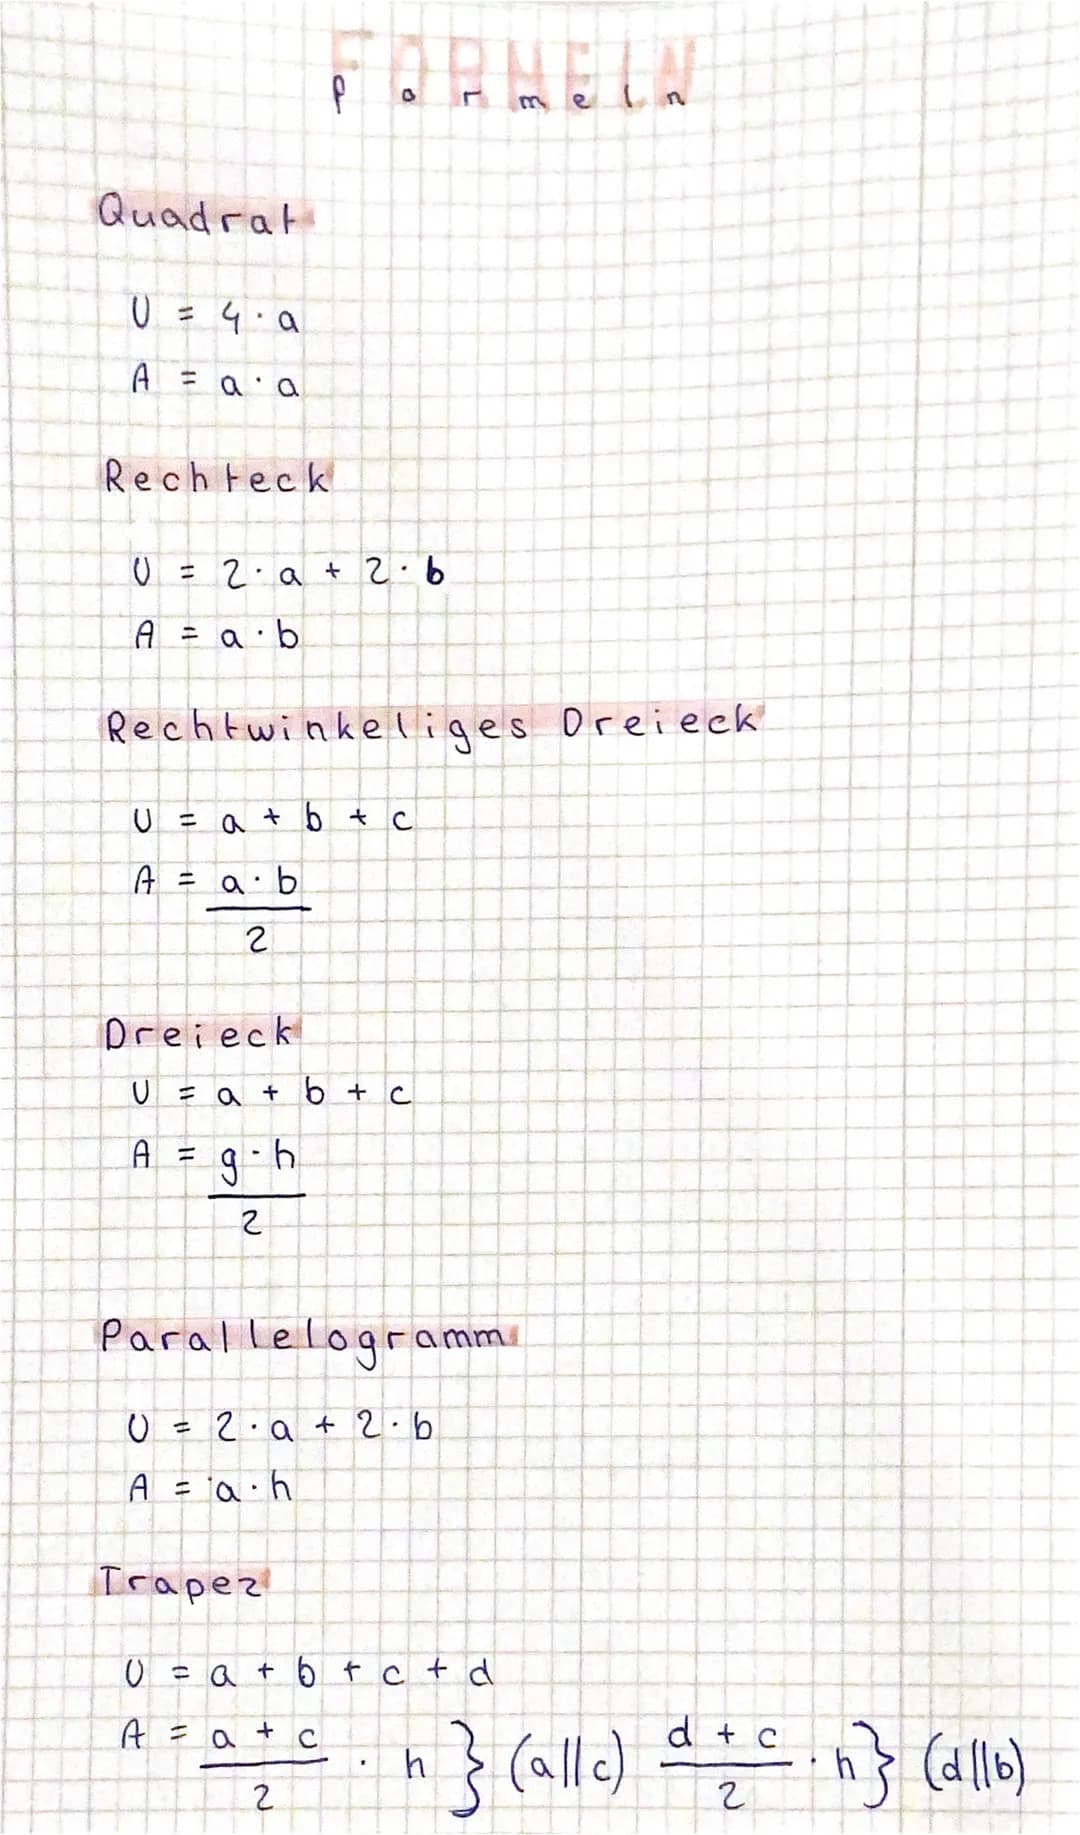 FORMELN
formeln
Quadrat
U = 4 · a
A = a · a
Rechteck
U = 2 · a + 2 · b
A = a · b
Rechtwinkeliges Dreieck
U = a + b + c
A = a · b
2
Dreieck
U = a + b + c
A = g · h
2
Parallelogramm
U = 2 · a + 2 · b
A = a · h
Trapez
U = a + b + c + d
A = a + c / 2 · h } (a||c) d + c / 2 · h } (d||b)